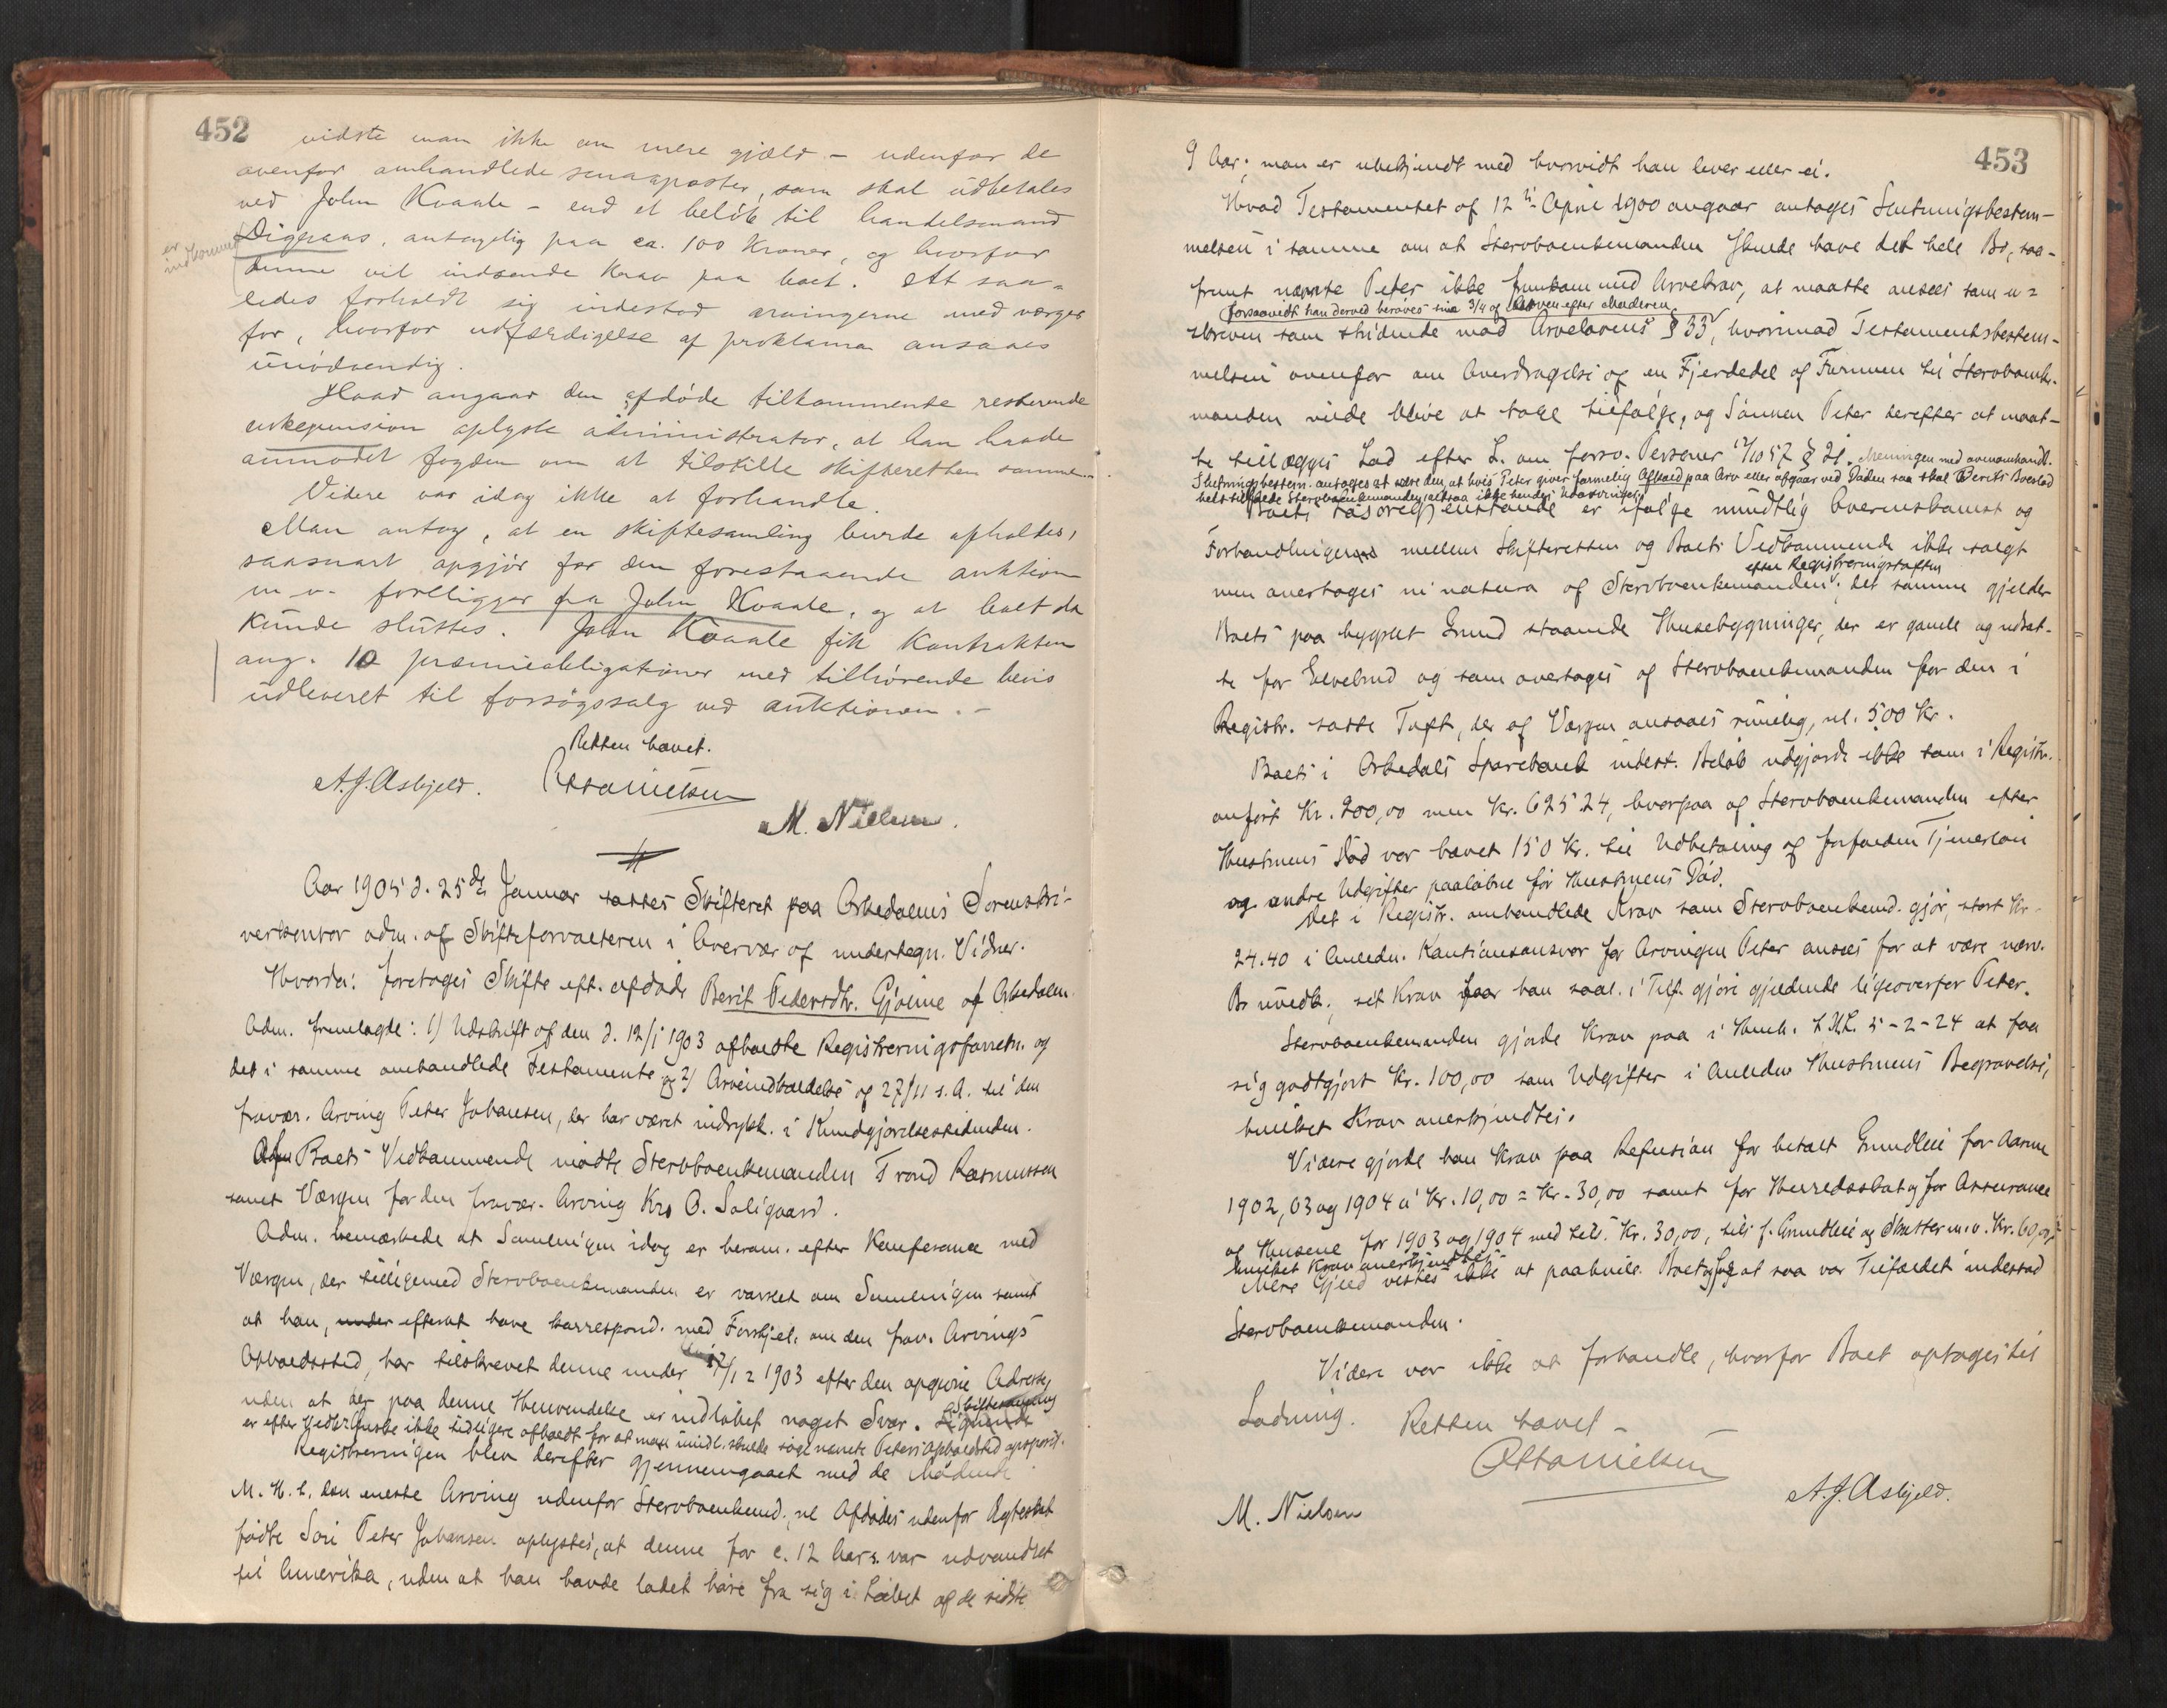 452
vidste man ikke om mere gjæld – udenfor de
ovenfor omhandlede smaaposter, som skal udbetales
ved John Kvaale – end et beløb til handelsmand
er indkommet
Digeraas, antagelig paa ca. 100 Kroner, og hvorfor
denne vil indsende Krav paa boet. At saa-
ledes forholdt sig indestod arvingerne med verger
for, hvorfor udfærdigelse af proklama ansaaes
unødvendig.
Hvad angaar den afdøde tilkommende resterende
enkepension oplyste administrator, at han havde
anmodet fogden om at tilstille skifteretten samme.
Videre var idag ikke at forhandle.
Man antog, at en skiftesamling burde afholdes,
saasnart opgjør for den forestaaende auktion
m.v. foreligger fra John Kvaale, og at boet da
kunde sluttes. John Kvaale fik Kontrakten
ang. 10 præmieobligationer med tilhørende bevis
udleveret til forsøgssalg ved auktionen. –
Retten hævet.
A. J. Asbjeld. Otto Nielsen
M. Nielsen.
Aar 1905 d. 25de Januar sattes Skifteret paa Orkedalens Sorenskri-
verkontor adm. af Skifteforvalteren i Overvær af undertegn. Vidner.
Hvorda: foretoges Skifte eft. afdøde Berit Pedersdtr. Gjølme af Orkedalen.
Adm. fremlagde: 1) Udskrift af den d. 12/1 1903 afholdte Registreringsforretn. og
det i samme omhandlede Testamente og 2) Arveindkaldelse af 27/11 s. A. til den
fravær. Arving Peter Johansen, der har været indrykk. i Kundgjørelsestidenden.
Af Boets Vedkommende mødte Stervboenkemanden Trond Rasmussen
samt Værgen for den fravær. Arving Kr. O. Saligaard.
Adm. bemærkede at Samlingen idag er beram. efter Konferance med
Værgen, der tilligemed Stervboenkemanden er varslet om Samlingen samt
at han, under efterat have korrespond. med Forskjel. om den frav. Arvings
Opholdssted, har tilskrevet denne under 17/12 1903 efter den opgivne Adresse,
uden at der paa denne Henvendelse er indløbet noget Svar. Skiftesamling
er efter Vedk. Ønske ikke tidligere afholdt for at man imidl. skulde søge nævnte Peters Opholdssted opspord.
Registreringen blev derefter gjennemgaaet med de Mødende.
M. H. t. den eneste Arving udenfor Stervboenkemd., nl. Afdødes udenfor Ægteskab
fødte Søn Peter Johansen oplystes, at denne for c. 12 Aar s. var udvandret
til Amerika, uden at han havde ladet høre fra sig i Løbet af de sidste
453
9 Aar; man er ubekjendt med hvorvidt han lever eller ei.
Hvad Testamentet af 12te April 1900 angaar antages Slutningsbestem-
melsen i samme om at Stervboenkemanden skulde have det hele Bo, saa-
fremt nævnte Peter ikke fremkom med Arvekrav, at maatte ansees som u-
forsaavidt han derved berøves sine 3/4 af Arven efter Moderen
skreven som stridende mod Arvelovens § 33, hvorimod Testamentsbestem-
melsen ovenfor om Overdragelse af en Fjerdedel af Formuen til Stervboenke-
manden vilde blive at tage tilfølge, og Sønnen Peter derefter at maat-
te tillægges Lod efter L. om forsv. Personer 12/10 57 § 21. Meningen med ovenomhandl.
Slutningsbestem. antages at være den, at hvis Peter giver formelig Afkald paa Arv eller afgaar ved Døden saa skal Berits Boeslod
helt tilfalde Stervboenkemanden, altsaa ikke hendes Udarvinger.
Boets Løsøregjenstande er ifølge mundtlig Overenskomst og
Forhandlinger mellem Skifteretten og Boets Vedkommende ikke solgt
efter Registreringstaxten
men overtages in natura af Stervboenkemanden; det samme gjelder
Boets paa bygslet Grund staaende Husebygninger, der er gamle og udsat-
te for Elvebrud og som overtages af Stervboenkemanden for den i
Registr. satte Taxt, der af Værgen ansaaes rimelig, nl. 500 Kr.
Boets i Orkedals Sparebank indest. Beløb udgjorde ikke som i Registr.
anført Kr. 900,00 men Kr. 625 24, hvorpaa af Stervboenkemanden efter
Hustruens Død var hævet 150 Kr. til Udbetaling af forfalden Tjenerløn
og andre Udgifter paaløbne før Hustruens Død.
Det i Registr. omhandlede Krav som Stervboenkemd. gjør, stort Kr.
24.40 i Anledn. Kautionsansvar for Arvingen Peter ansees for at være nærv.
Bo uvedk.; set Krav faar han saal. i Tilf. gjøre gjældende ligeoverfor Peter.
Stervboenkemanden gjorde Krav paa i Henh. t. N. L. 5-2-24 at faa
sig godtgjort Kr. 100,00 som Udgifter i Anledn Hustruens Begravelse,
hvilket Krav anerkjendtes.
Videre gjorde han Krav paa Refusion for betalt Grundleie for Aarene
1902, 03 og 1904 á Kr. 10,00 = Kr. 30,00 samt for Herredsskat og for Assurance
af Husene for 1903 og 1904 med tils. Kr. 30,00, tils. f. Grundleie og Skatter m.v. Kr. 60,00,
hvilket Krav anerkjendtes.
Mere Gjæld vistes ikke at paahvile Boet, og for at saa var Tilfældet indestod
Stervboenkemanden.
Videre var ikke at forhandle, hvorfor Boet optages til
Lodning. Retten hævet –
Otto Nielsen
M. Nielsen
A. J. Asbjeld.